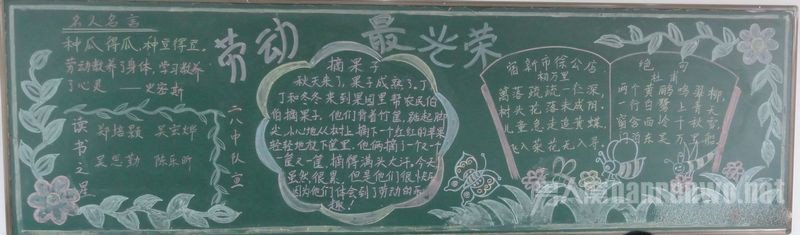 劳动 最光荣
名人名言
种瓜得瓜,种豆得豆。
劳动教养了身体,学习教养
了心灵 ——史密斯
读书之星
郑培颢 吴宏烨
吴思勤 陈乐昕
二八中队宣
摘果子
秋天来了,果子成熟了。丁
丁和冬冬来到果园里帮农民伯
伯摘果子。他们背着竹筐,踮起脚
尖,小心地从树上摘下一个红红的苹果
轻轻地放下筐里。他俩摘了一个又一个
一筐又一筐,摘得满头大汗。今天
虽然很累,但是他们很快乐
因为他们体会到了劳动的乐
趣!
宿新市徐公店
杨万里
篱落疏疏一径深,
树头花落未成阴。
儿童急走追黄蝶,
飞入菜花无处寻。
绝句
杜甫
两个黄鹂鸣翠柳,
一行白鹭上青天。
窗含西岭千秋雪,
门泊东吴万里船。
nanrenwo.net